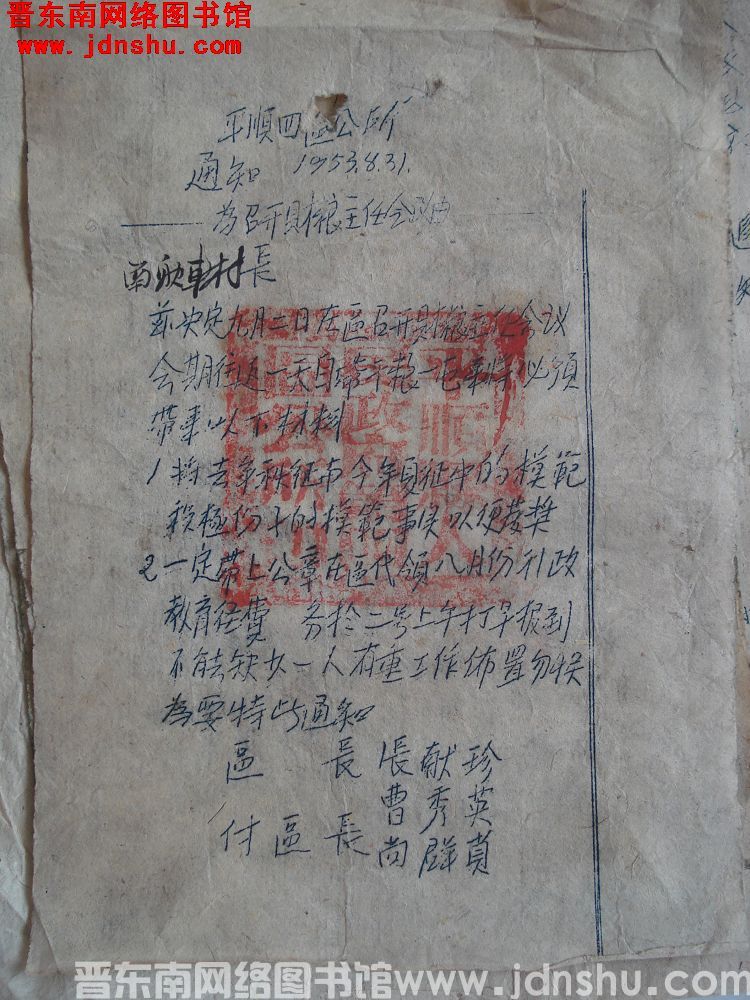 晋东南网络图书馆
www.jdnshu.com
平順四區公所
通知 1953.8.31.
為召开財粮主任会议由
車村長
茲决定九月二日在區召开財粮主任会议
会期往返一天自带午粮一屯来時必须
帶来以下材料
1 将去年秋征与今年夏征中的模範
積極份子的模範事实以便发奖
2 一定帶上公章在區代领八月份行政
教育经费 务於二号上午打早报到
不能缺少一人有重工作佈置勿悮
為要特此通知
區 長 張献珍
曹秀英
付區長 尚群貞
晋东南网络图书馆www.jdnshu.com